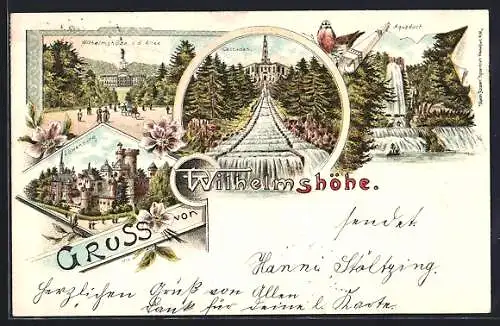 Wilhelmshöhe v. d. Allee
Cascaden.
Aquaduct
Löwenburg
Gruss von
Wilhelmshöhe.
sendet
Hanni Stöltzing.
Herzlichen Gruß von Allen
Dank für deine l. Karte.